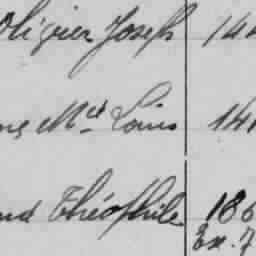 Olivier Joseph 14
Mcel Louis 141
Théophile 186
Ex. 7